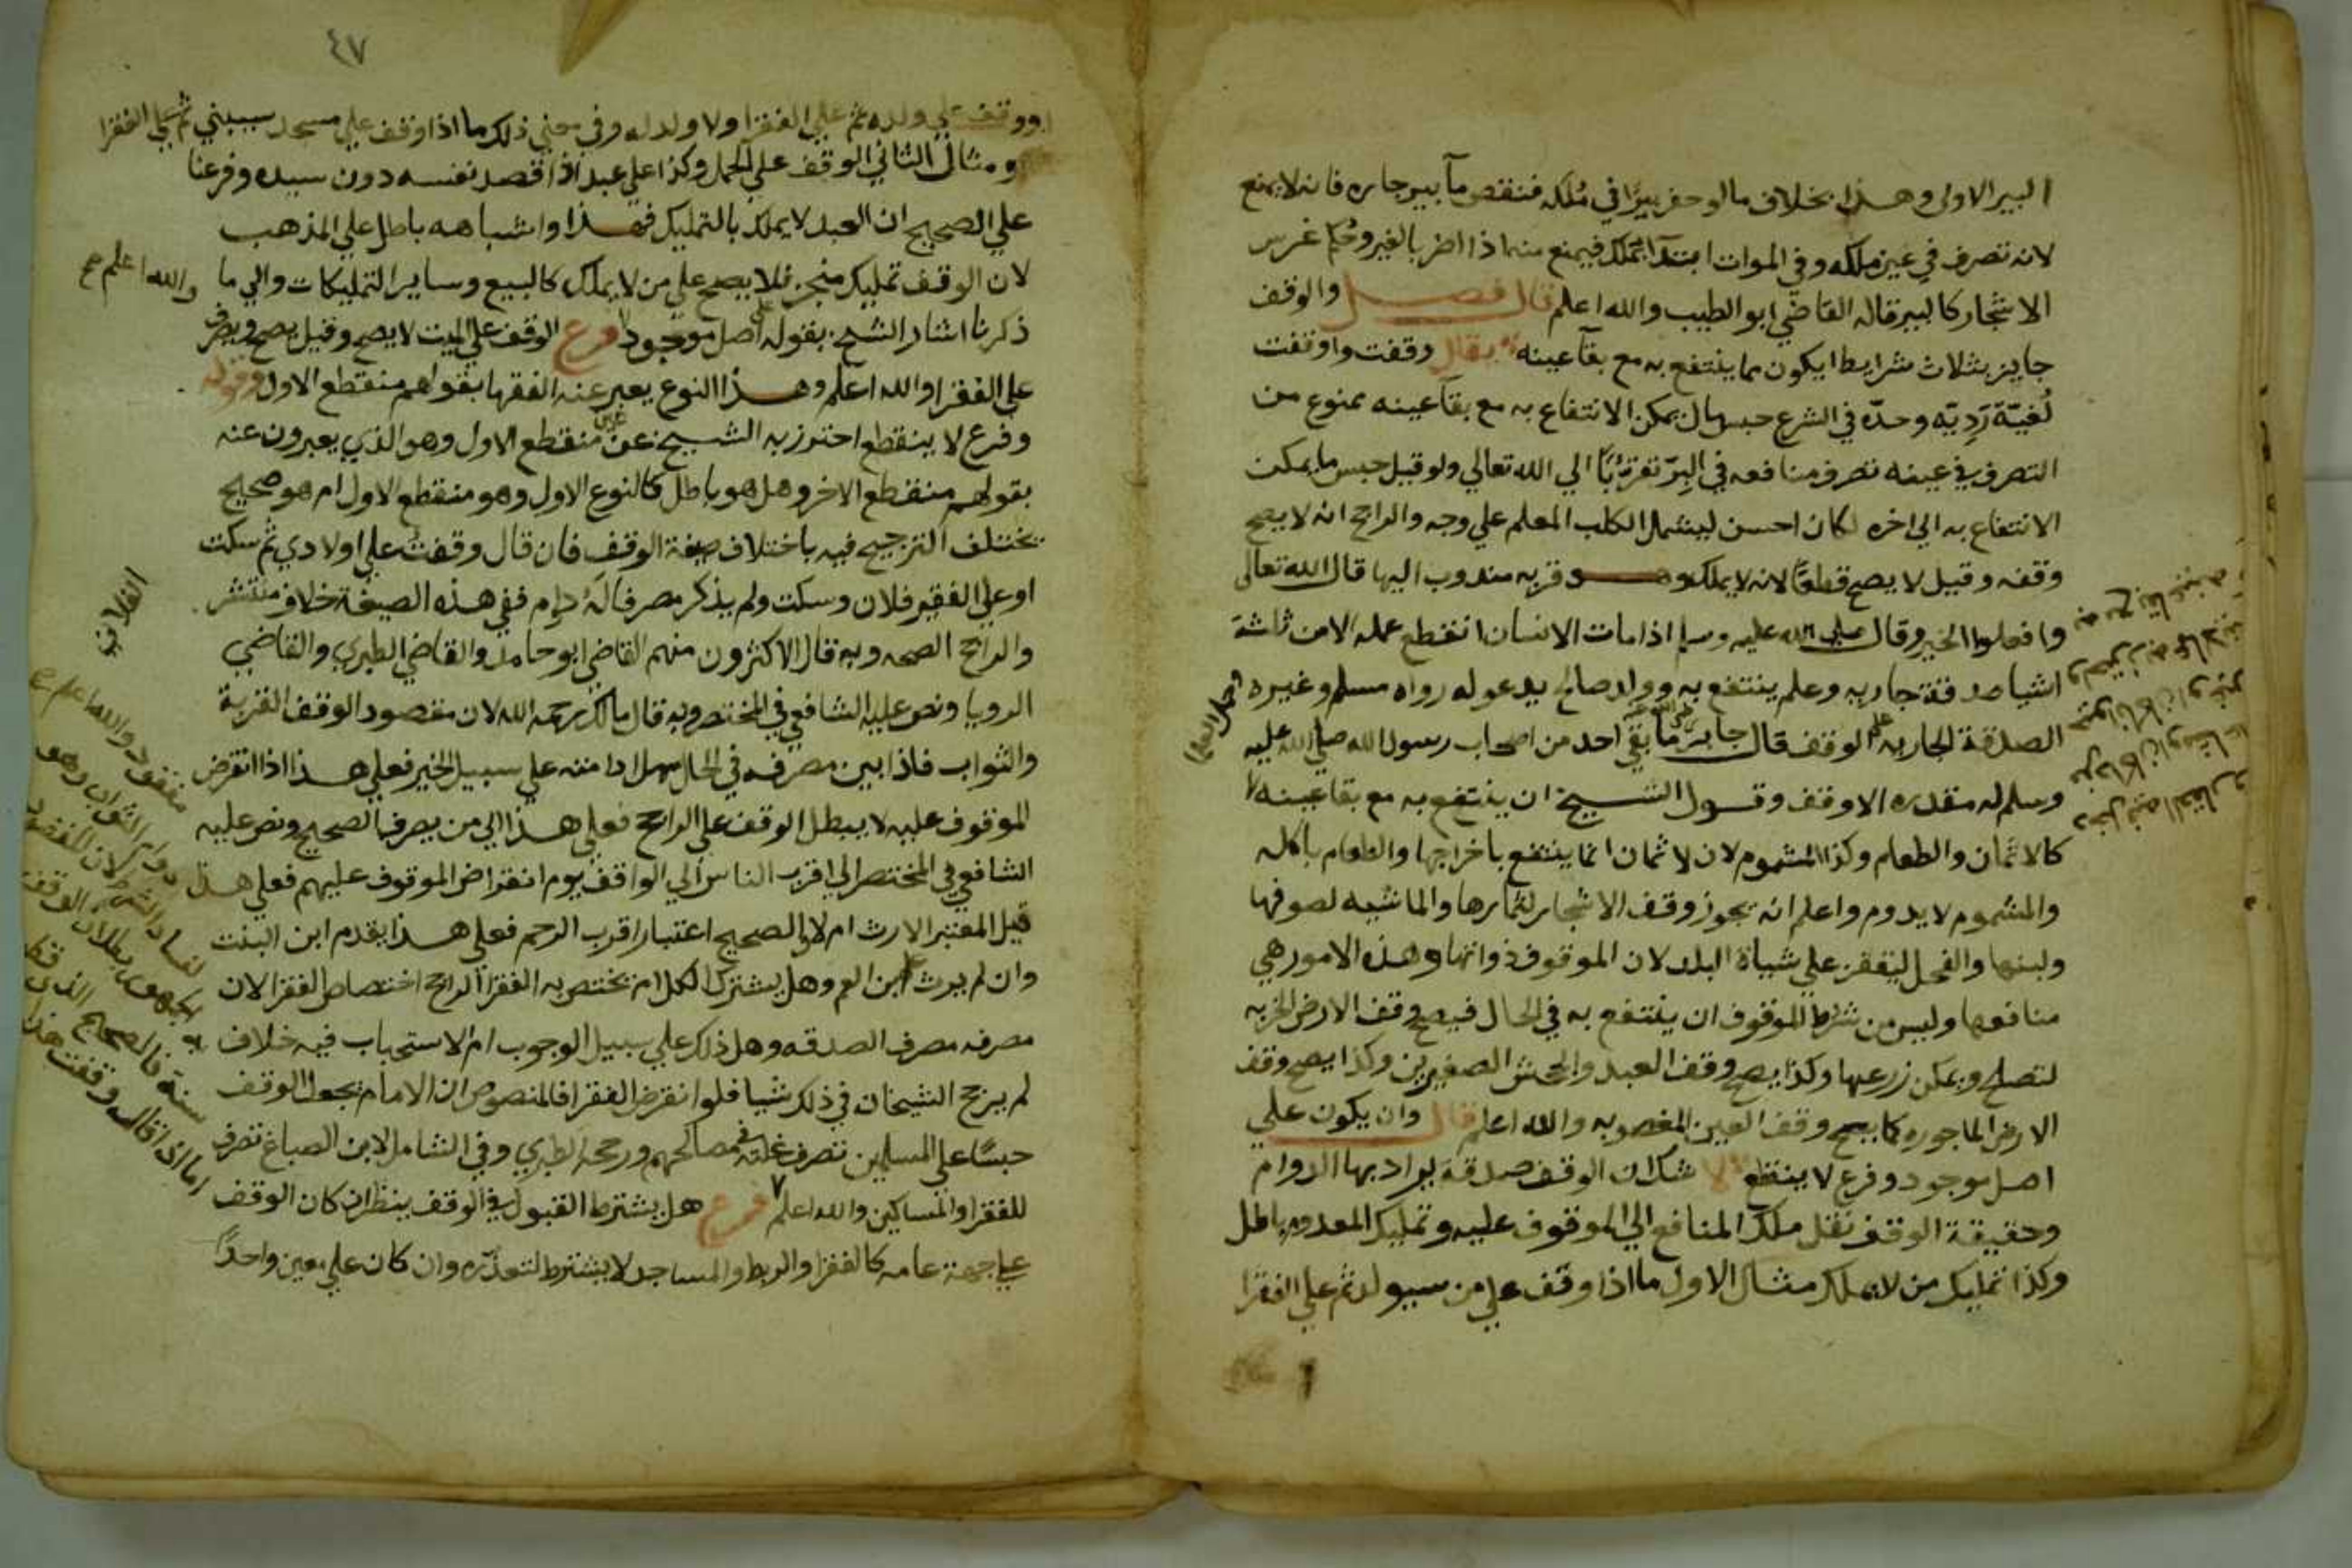 البير الاولى وهذا بخلاف ما لو حفر بيرا في ملكه فنقص مآ بير جاره فانه لا يمنع
لانه تصرف في عين ملكه وفي الموات ابتدآ تملك فيمنع منه اذا اضر بالغير وحكم غرس
الاشجار كالبير قاله القاضي ابو الطيب والله اعلم قال فصل والوقف
جايز بثلاث شرايط ان يكون مما ينتفع به مع بقآ عينه يقال وقفت واوقفت
لغية ردية وحده في الشرع حبس مال يمكن الانتفاع به مع بقآ عينه ممنوع من
التصرف في عينه تصرف منافعه في البر تقربا الي الله تعالي ولو قيل حبس ما يمكن
الانتفاع به الي اخره لكان احسن ليشمل الكلب المعلم علي وجه والراجح انه لا يصح
وقفه وقيل لا يصح قطعا لانه لا يملك وهو قربه مندوب اليها قال الله تعالى
وافعلوا الخير وقال صلي الله عليه وسلم اذا مات الانسان انقطع عمله الا من ثلاثة
اشيا صدقة جاريه وعلم ينتفع به وولد صالح يدعو له رواه مسلم وغيره
الصدقة الجاريه علي الوقف قال جابر ما بقي احد من اصحاب رسول الله صلي الله عليه
وسلم له مقدره الا وقف وقول الشيخ ان ينتفع به مع بقا عينه
كالاثمان والطعام وكذا المشموم لان الاثمان انما ينتفع باخراجها والطعام باكله
والمشموم لا يدوم واعلم انه يجوز وقف الاشجار لثمارها والماشيه لصوفها
ولبنها والفحل ليقفز علي شياة البلد لان الموقوف ذواتها وهذه الامور هي
منافعها وليس من شرط الموقوف ان ينتفع به في الحال فيصح وقف الارض الخربه
لتصلح ويمكن زرعها وكذا يصح وقف العبد والجحش الصغيرين وكذا يصح وقف
الارض الماجوره كما يصح وقف العين المغصوبه والله اعلم قال وان يكون علي
اصل موجود وفرع لا ينقطع لا شك ان الوقف صدقة يراد بها الدوام
وحقيقة الوقف نقل ملك المنافع الي الموقوف عليه وتمليك المعدوم باطل
وكذا تمليك من لا يملك مثال الاول ما اذا وقف علي من سيولد ثم علي الفقرا
٤٧
او وقف علي ولده ثم علي الفقرا ولا ولد له وفي معني ذلك ما اذا وقف علي مسجد سيبني ثم علي الفقرا
ومثال الثاني الوقف علي الحمل وكذا علي عبد اذا قصد نفسه دون سيده وفرعنا
علي الصحيح ان العبد لا يملك بالتمليك فهذا واشباهه باطل علي المذهب
لان الوقف تمليك منجز فلا يصح علي من لا يملك كالبيع وساير التمليكات والي ما
والله اعلم صح
ذكرنا اشار الشيخ بقوله علي اصل موجود فرع الوقف علي الميت لا يصح وقيل يصح ويصرف
علي الفقرا والله اعلم وهذا النوع يعبر عنه الفقها بقولهم منقطع الاول وقوله
وفرع لا ينقطع احترز به الشيخ عن منقطع الاول وهو الذي يعبرون عنه
بقولهم منقطع الاخر وهل هو باطل كالنوع الاول وهو منقطع الاول ام هو صحيح
يختلف الترجيح فيه باختلاف صيغة الوقف فان قال وقفت علي اولادي ثم سكت
او علي الفقير فلان وسكت ولم يذكر مصرفا له دوام ففي هذه الصيغة خلاف منتشر
والراجح الصحه وبه قال الاكثرون منهم القاضي ابو حامد والقاضي الطبري والقاضي
الرويا ونص عليه الشافعي في المختصر وبه قال مالك رحمه الله لان مقصود الوقف القربة
والثواب فاذا بين مصرفه في الحال سهل ادامته علي سبيل الخير فعلي هذا اذا انقرض
الموقوف عليه لا يبطل الوقف علي الراجح فعلي هذا الي من يصرف الصحيح ونص عليه
الشافعي في المختصر الي اقرب الناس الي الواقف يوم انقراض الموقوف عليهم فعلي هذا
قيل المعتبر الارث ام لا والصحيح اعتبار اقرب الرحم فعلي هذا يقدم ابن البنت
وان لم يرث علي ابن العم وهل يشترك الكل ام يختص به الفقرا الراجح اختصاص الفقرا لان
مصرفه مصرف الصدقه وهل ذلك علي سبيل الوجوب ام الاستحباب فيه خلاف
لم يرجح الشيخان في ذلك شيا فلو انقرض الفقرا فالمنصوص ان الامام يجعل الوقف
حبسا علي المسلمين تصرف غلته في مصالحهم ورجحه الطبري وفي الشامل لابن الصباغ تصرف
للفقرا والمساكين والله اعلم فرع هل يشترط القبول في الوقف ينظر ان كان الوقف
علي جهة عامه كالفقرا والربط والمساجد لا يشترط لتعذره وان كان علي معين واحدا